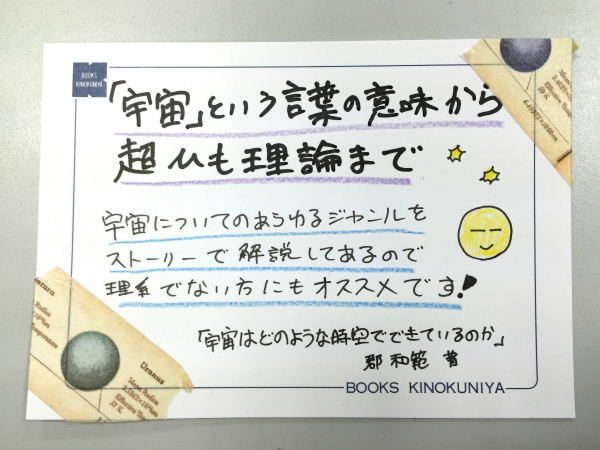 BOOKS
KINOKUNIYA
「宇宙」という言葉の意味から
超ひも理論まで
宇宙についてのあらゆるジャンルを
ストーリーで解説してあるので
理系でない方にもオススメです!
「宇宙はどのような時空でできているのか」
郡 和範 著
BOOKS KINOKUNIYA
Uranus
Mean Radius
Effective Tem